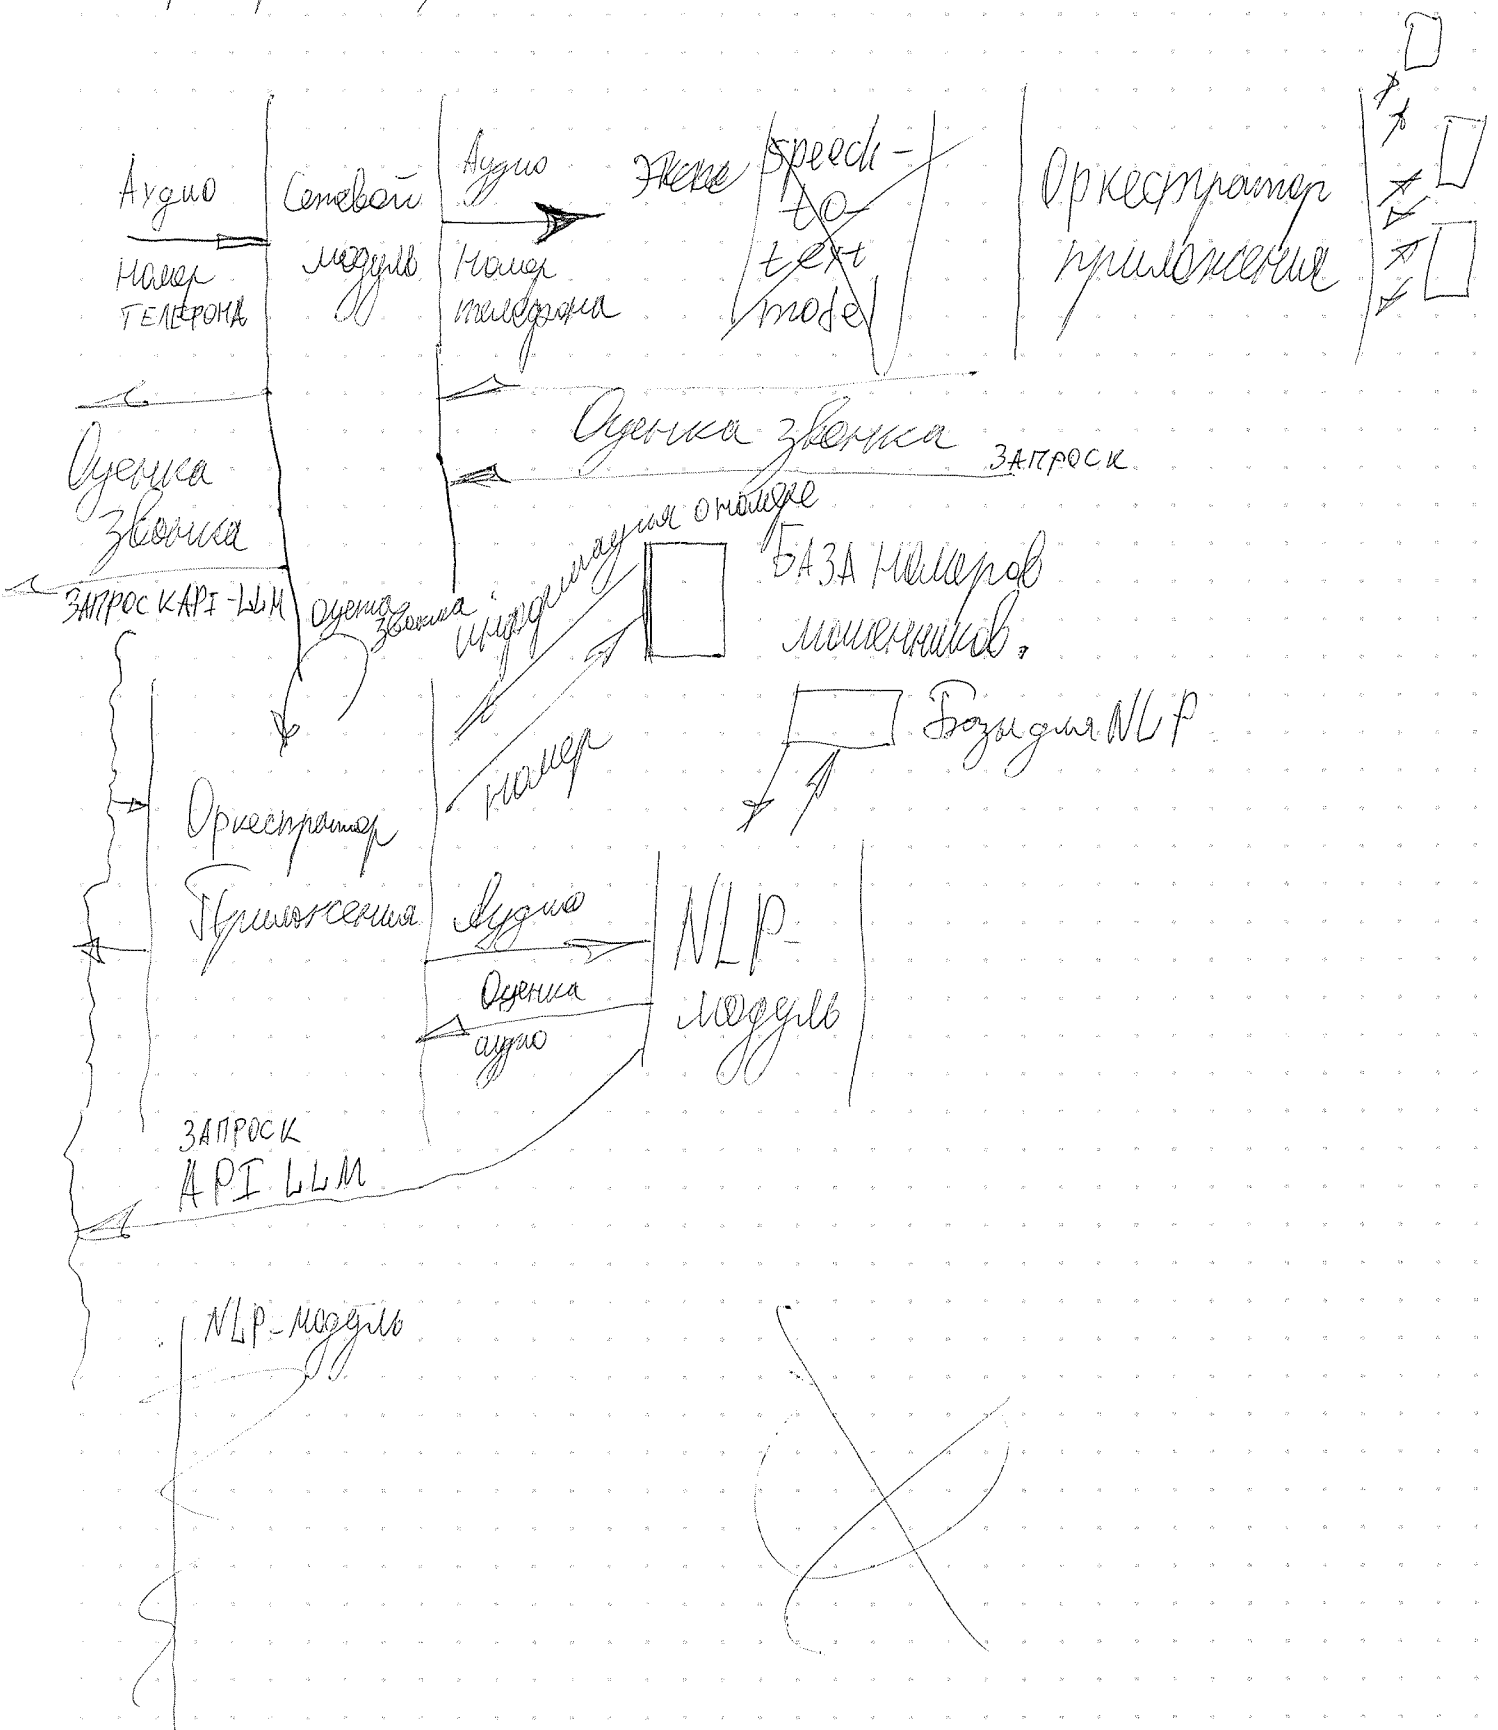 Аудио
номер
ТЕЛЕФОНА
Сетевой
модуль
Аудио
Номер
телефона
speech-
to-
text
model
Оркестратор
приложения
Оценка
звонка
Оценка звонка
ЗАПРОС К
ЗАПРОС К API-LLM
оценка
звонка
информация о номере
номер
БАЗА номеров
мошенников.
Базы для NLP
Оркестратор
Приложения
Аудио
Оценка
аудио
NLP-
модуль
ЗАПРОС К
API LLM
NLP-модуль